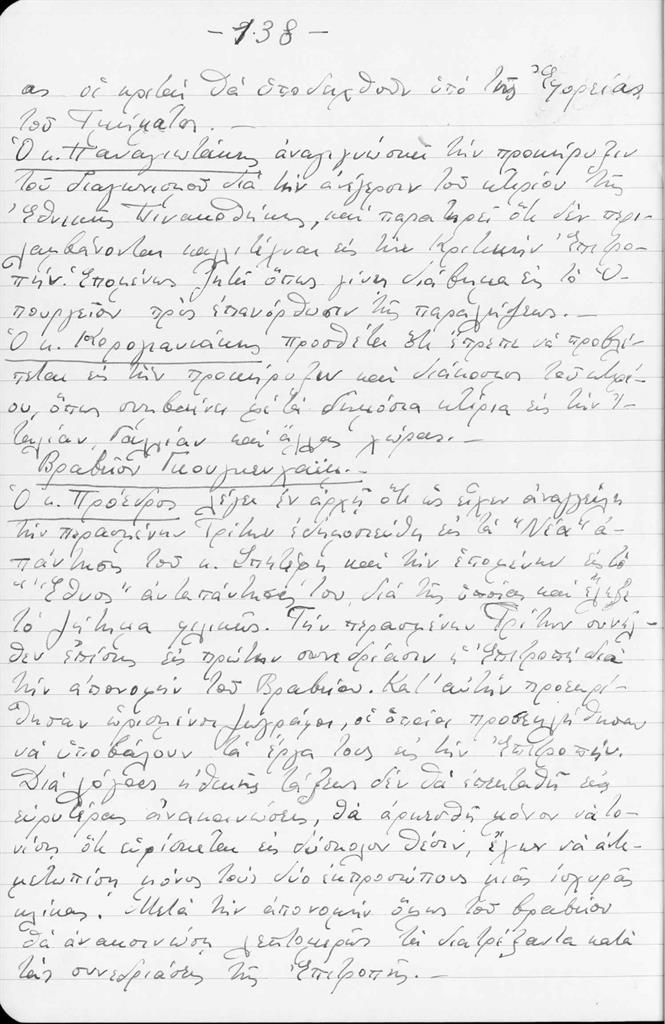 - 138 -
ας οἱ κριταὶ θὰ ὑποδειχθοῦν ὑπὸ τῆς Ἐφορείας
τοῦ Τμήματος. -
Ὁ κ. Παναγιωτάκης ἀναγιγνώσκει τὴν προκήρυξιν
τοῦ διαγωνισμοῦ διὰ τὴν ἀνέγερσιν τοῦ κτιρίου τῆς
Ἐθνικῆς Πινακοθήκης, καὶ παρατηρεῖ ὅτι δὲν περι-
λαμβάνονται καλλιτέχναι εἰς τὴν Κριτικὴν Ἐπιτρο-
πήν. Ἑπομένως ζητεῖ ὅπως γίνῃ διάβημα εἰς τὸ Ὑ-
πουργεῖον πρὸς ἐπανόρθωσιν τῆς παραλείψεως. -
Ὁ κ. Κορογιαννάκης προσθέτει ὅτι ἔπρεπε νὰ προβλέ-
πεται εἰς τὴν προκήρυξιν καὶ διάκοσμος τοῦ κτιρί-
ου, ὅπως συμβαίνει μὲ τὰ δημόσια κτίρια εἰς τὴν Ἰ-
ταλίαν, Γαλλίαν καὶ ἄλλας χώρας. -
Βραβεῖον Γκουγκενχάϊμ. -
Ὁ κ. Πρόεδρος λέγει ἐν ἀρχῇ ὅτι ὡς εἶχεν ἀναγγείλει
τὴν περασμένην Τρίτην ἐδημοσιεύθη εἰς τὰ "Νέα" ἀ-
πάντησις τοῦ κ. Σπητέρη καὶ τὴν ἑπομένην εἰς τὸ
"Ἔθνος" ἀνταπάντησίς του, διὰ τῆς ὁποίας καὶ ἔληξε
τὸ ζήτημα φιλικῶς. Τὴν περασμένην Τρίτην συνῆλ-
θεν ἐπίσης εἰς πρώτην συνεδρίασιν ἡ Ἐπιτροπὴ διὰ
τὴν ἀπονομὴν τοῦ Βραβείου. Κατ' αὐτὴν προεκρί-
θησαν ὡρισμένοι ζωγράφοι, οἱ ὁποῖοι προσεκλήθησαν
νὰ ὑποβάλουν τὰ ἔργα τους εἰς τὴν Ἐπιτροπήν.
Διὰ λόγους ἠθικῆς τάξεως δὲν θὰ ἐπεκταθῇ εἰς
εὐρυτέρας ἀνακοινώσεις, θὰ ἀρκεσθῇ μόνον νὰ το-
νίσῃ ὅτι εὑρίσκεται εἰς δύσκολον θέσιν, ἔχων νὰ ἀντι-
μετωπίσῃ μόνος τοὺς δύο ἐκπροσώπους μιᾶς ἰσχυρᾶς
κλίκας. Μετὰ τὴν ἀπονομὴν ὅμως τοῦ βραβείου
θὰ ἀνακοινώσῃ λεπτομερῶς τὰ διατρέξαντα κατὰ
τὰς συνεδριάσεις τῆς Ἐπιτροπῆς. -